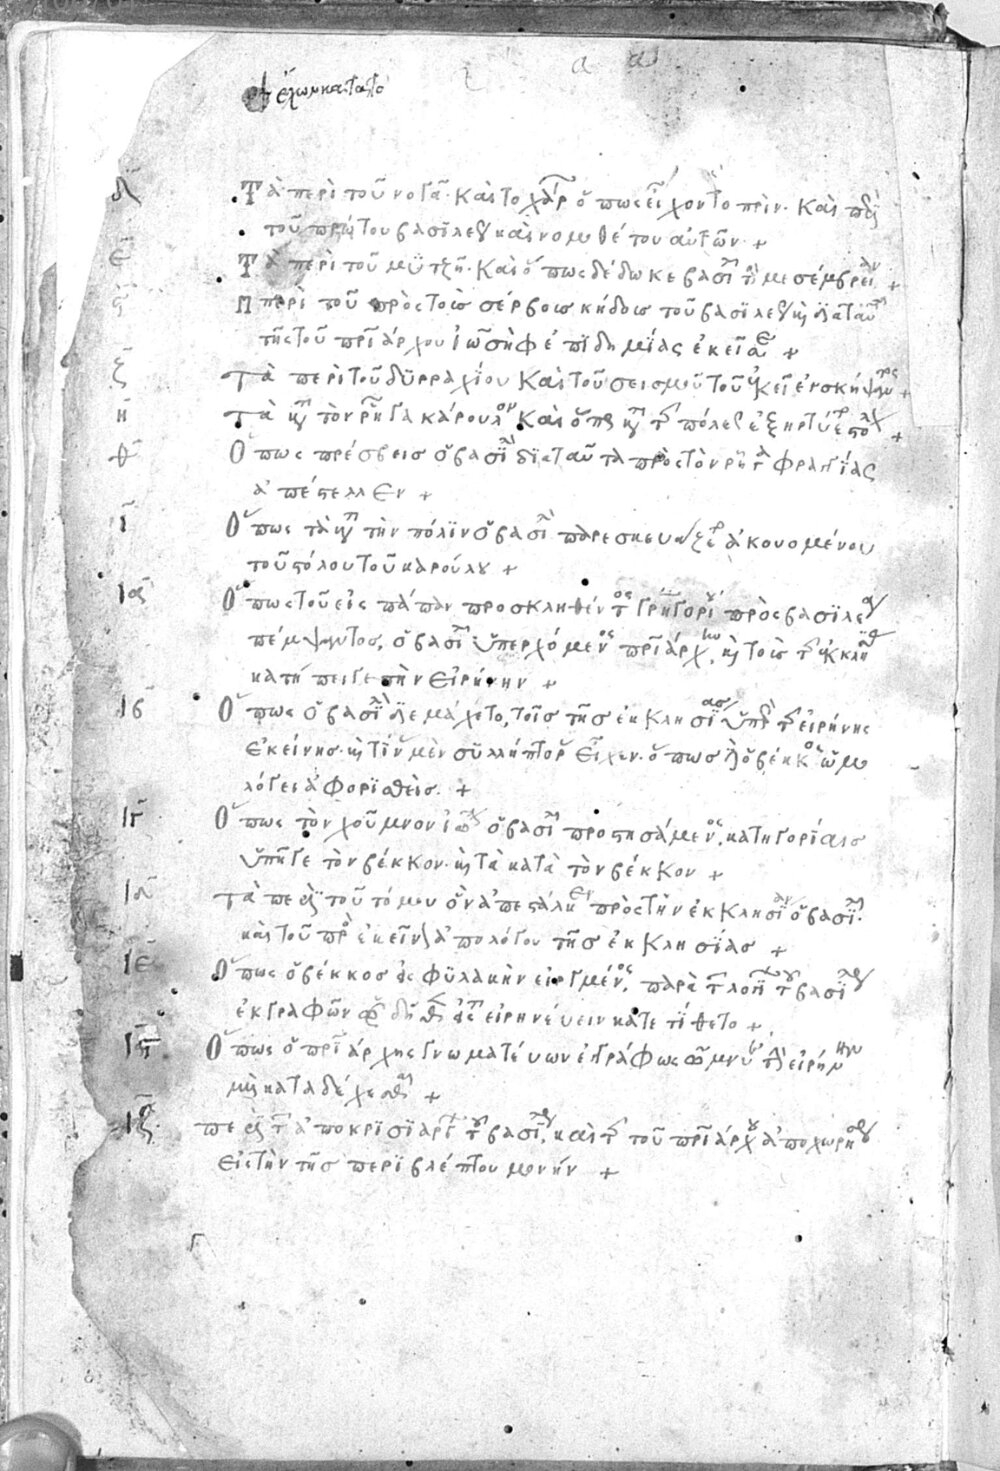 δ Τὰ περὶ τοῦ νογᾶ· καὶ τοχάρ ὅπως εἶχον τὸ πρὶν· καὶ περὶ
τοῦ πρώτου βασιλέως καὶ νομοθέτου αὐτῶν· +
ε Τὰ περὶ τοῦ μυτζῆ· καὶ ὅπως δέδωκε βασιλεῖ τὴν μεσέμβρειαν +
ς περὶ τοῦ πρὸς τοὺς σέρβους κήδους τοῦ βασιλέως
τῆς τοῦ πριάρχου ἰωσὴφ ἐπιδημίας ἐκεῖσε +
ζ τὰ περὶ τοῦ δυρραχίου καὶ τοῦ σεισμοῦ τοῦ ἐκεῖ ἐνσκήψαντος +
η τὰ κατὰ τὸν ῥῆγα κάρουλον καὶ ὅπως κατὰ τῆς πόλεως ἐξηρτύετο +
θ Ὅπως πρέσβεις ὁ βασιλεὺς διὰ ταῦτα πρὸς τὸν ῥῆγα φραγγίας
ἀπέστελλεν +
ι Ὅπως τὰ κατὰ τὴν πόλιν ὁ βασιλεὺς παρεσκευάζετο ἀκουομένου
τοῦ στόλου τοῦ καρούλου +
ια Ὅπως τοῦ εἰς πάπαν προσκληθέντος γρηγορίου πρὸς βασιλέα
πέμψαντος, ὁ βασιλεὺς ὑπερχόμενος πριάρχην, καὶ τοὺς τῆς ἐκκλησίας
κατήπειγε πρὸς τὴν εἰρήνην +
ιβ Ὅπως ὁ βασιλεὺς διεμάχετο, τοῖς τῆς ἐκκλησίας ὑπὲρ τῆς εἰρήνης
ἐκείνης· καὶ τίν μὲν συλλήπτορ εἶχεν· ὅπως δὲ ὁ βέκκος ὡμο
λόγει ἀφορισθείς· +
ιγ Ὅπως τὸν χοῦμνον ἰω ὁ βασιλεὺς προστησάμενος, κατηγορίαις
ὑπῆγε τὸν βέκκον· καὶ τὰ κατὰ τὸν βέκκον +
ιδ τὰ περὶ τοῦ τόμου ὃν ἀπεστάλκει πρὸς τὴν ἐκκλησίαν ὁ βασιλεύς·
καὶ τοῦ πρὸς ἐκεῖνον ἀπολόγου τῆς ἐκκλησίας +
ιε Ὅπως ὁ βέκκος εἰς φυλακὴν εἰργμένος, παρὰ τῶν τοῦ βασιλέως
ἐκ γραφῶν εἰρηνεύειν κατετίθετο +
ις Ὅπως ὁ πριάρχης γνωματεύων ἐγγράφως ὤμνυ τὴν εἰρήνην
μὴ καταδέχεσθαι +
ιζ περὶ τῶν ἀποκρισιαρίων τοῦ βασιλέως, καὶ τῆς τοῦ πριάρχου ἀποχωρήσεως
εἰς τὴν τῆς περιβλέπτου μονήν +